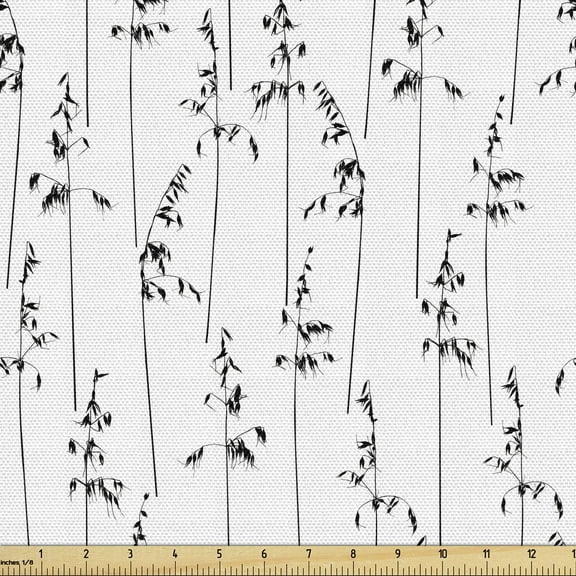 1 2 3 4 5 6 7 8 9 10 11 12 13
inches, 1/8